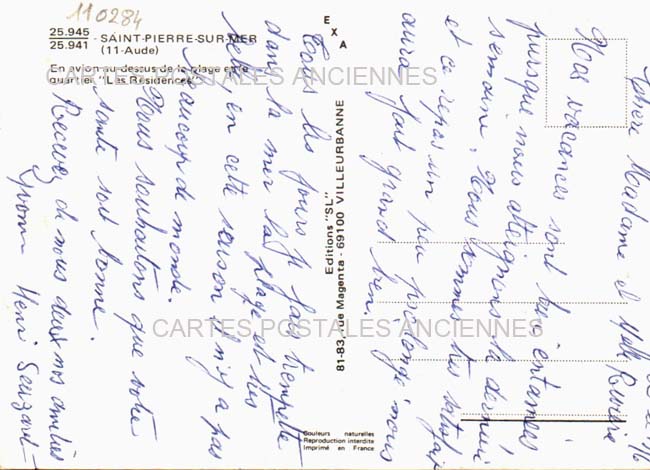 110284
25.945
25.941 - SAINT-PIERRE-SUR-MER
(11-Aude)
En avion au-dessus de la plage et le
quartier "Les Résidences"
EXA
Editions "SL"
81-83, rue Magenta - 69100 VILLEURBANNE
Couleurs naturelles
Reproduction interdite
Imprimé en France
CARTES POSTALES ANCIENNES
CARTES POSTALES ANCIENNES
Chère Madame et Melle
Nos vacances sont bien entamées
puisque nous atteignons la dernière
semaine. Nous sommes très satisfaits
et ce repos un peu prolongé nous
aura fait grand bien.
Tous les jours je fais trempette
dans la mer la plage est très
belle en cette saison il n'y a pas
beaucoup de monde.
Nous souhaitons que votre
santé soit bonne.
Recevez de nous deux nos amitiés
Yvonne Henri